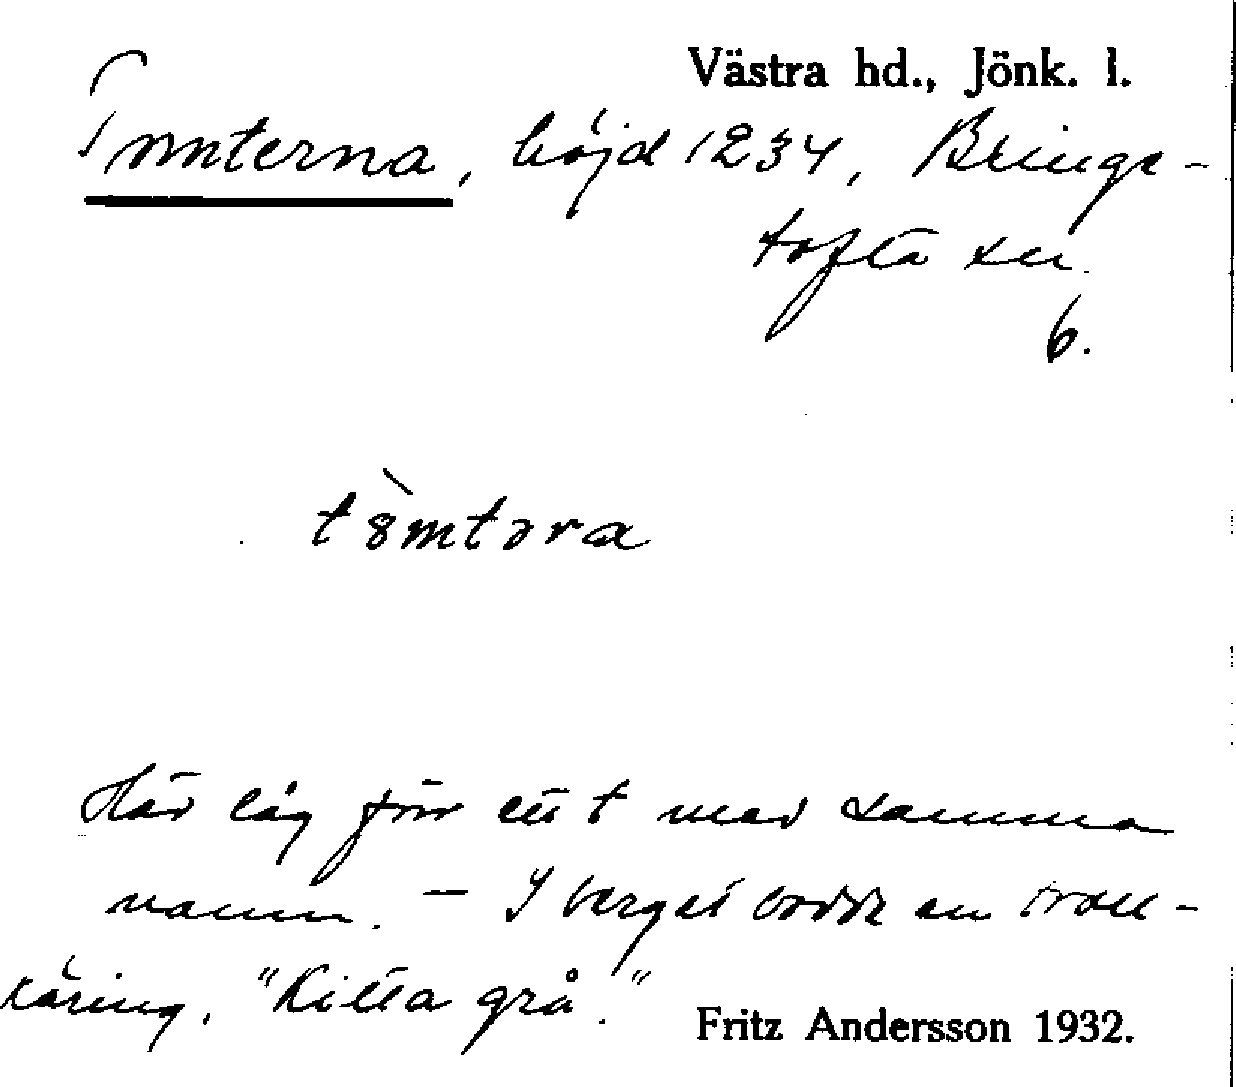 Västra hd., Jönk. l.
Tomterna, höjd 1234, Brings-
tofta sn.
6.
t ò̈mtəra
Här låg förr ett t med samma
namn. - I berget bodde en troll-
käring, "Kitta grå."
Fritz Andersson 1932.